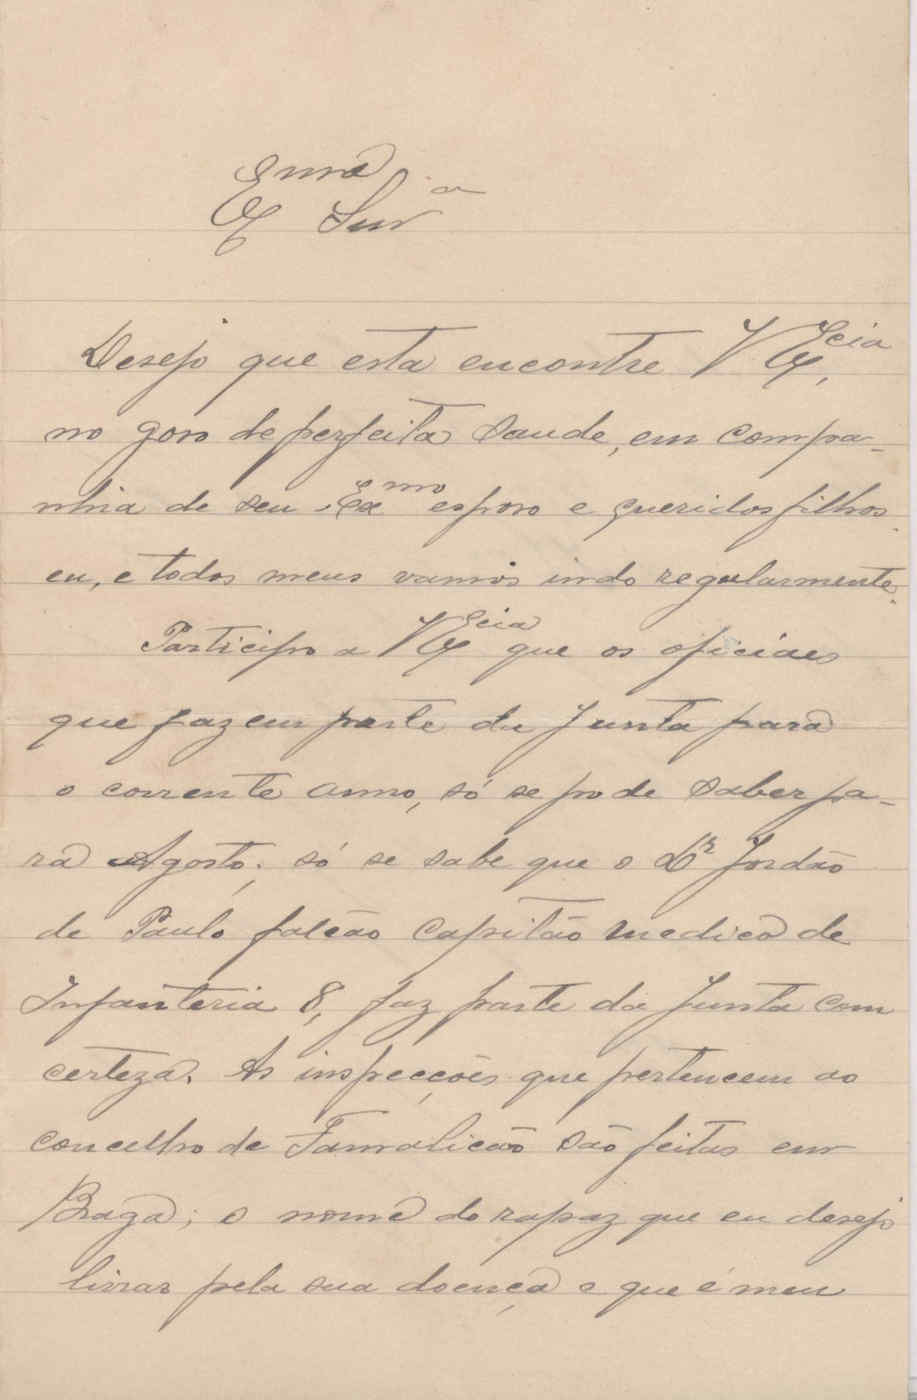 Exma Snra
Desejo que esta encontre V Ecia,
no gozo de perfeita saude, em compa-
nhia de seu Exmo esposo e queridos filhos.
eu, e todos meus vamos indo regularmente.
Participo a V Ecia que os oficiáes
que fazem parte da Junta para
o corrente anno, só se pode saber pa-
ra Agosto; só se sabe que o Dr Jordão
de Paulo falcão Capitão medico de
Infanteria 8, faz parte da Junta com
certeza. As inspecções que pertencem ao
concelho de Famalicão são feitas em
Braga; o nome do rapaz que eu desejo
livrar pela sua doença e que é meu